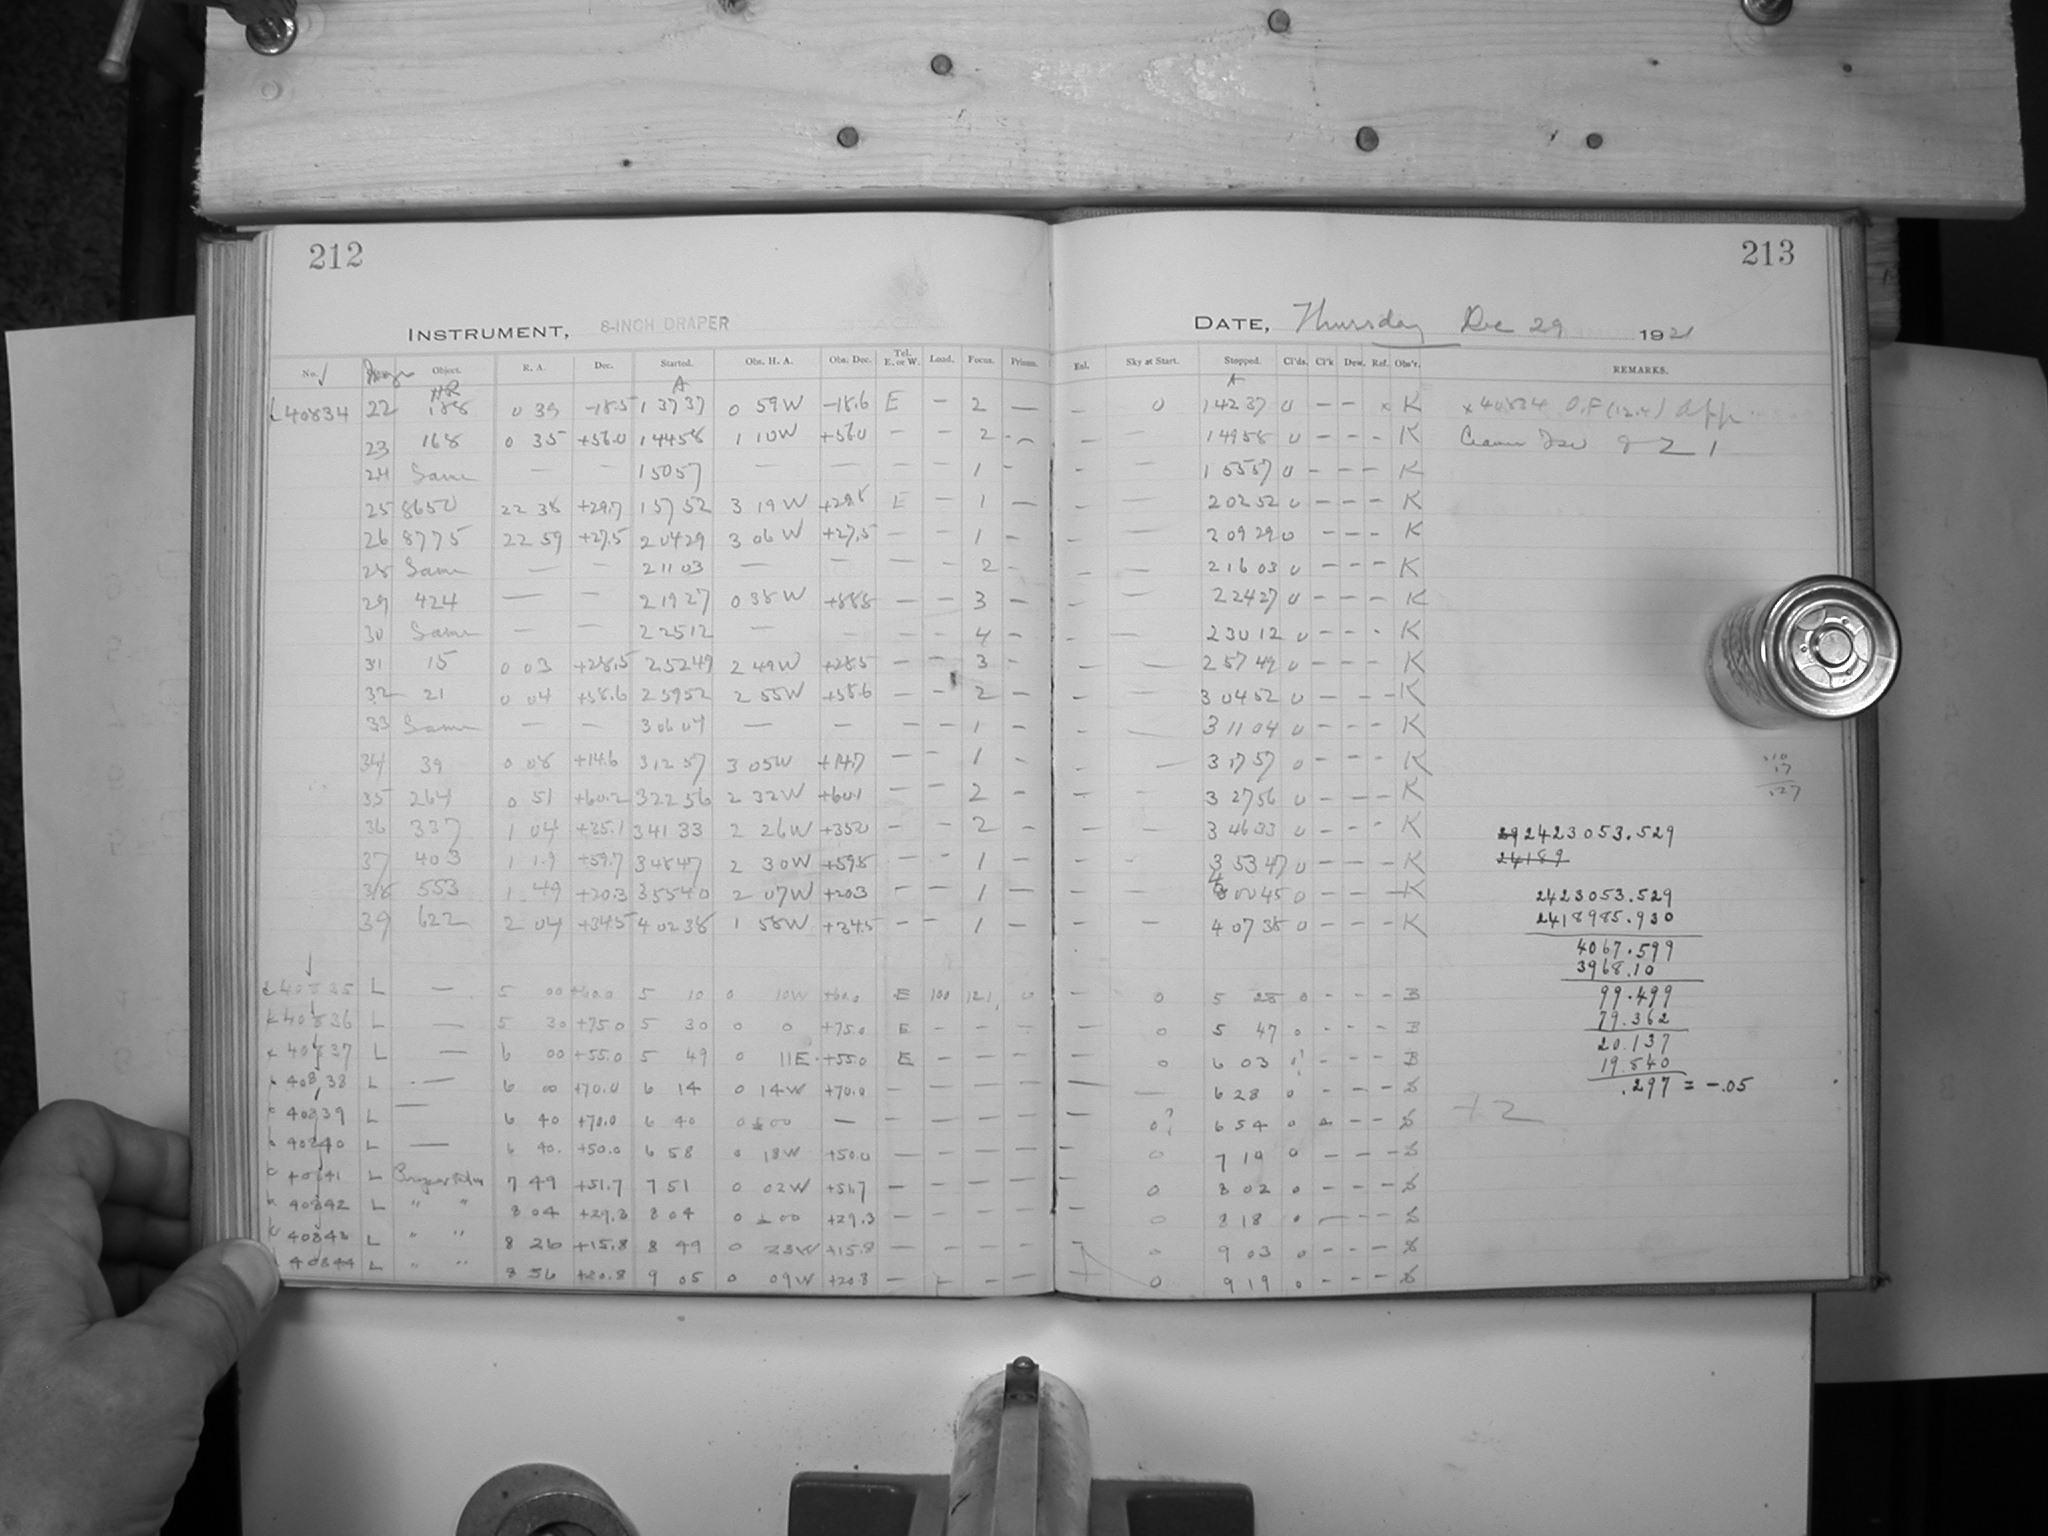 212
213
INSTRUMENT, 8-INCH DRAPER
DATE, Thursday Dec 29 1921
No. Object. R. A. Dec. Started. Obs. H. A. Obs. Dec. Tel. E. or W. Load. Focus. Prisms. Enl. Sky at Start. Stopped. Cl'ds. Cl'k Dew. Ref. Obs'r. REMARKS.
HR A A
L40834 22 188 0 39 -18.5 1 37 37 0 59W -18.6 E - 2 — - 0 1 42 37 0 - - x K x 40834
23 168 0 35 +56.0 1 44 58 1 10W +56.0 - - 2 - - — 1 49 58 0 - - - K
24 Same — — 1 50 57 — — - - 1 - - — 1 55 57 0 - - - K
25 8650 22 38 +29.7 1 57 52 3 19W +29.8 E - 1 — - — 2 02 52 0 - - - K
26 8775 22 59 +27.5 2 04 29 3 06W +27.5 - - 1 - - — 2 09 29 0 - - - K
28 Same — — 2 11 03 — — - - 2 - - — 2 16 03 0 - - - K
29 424 — — 2 19 27 0 38W +88.8 - - 3 - - — 2 24 27 0 - - - K
30 Same — — 2 25 12 — - - - 4 - - — 2 30 12 0 - - - K
31 15 0 03 +28.5 2 52 49 2 49W +28.5 - - 3 - - — 2 57 49 0 - - - K
32 21 0 04 +58.6 2 59 52 2 55W +58.6 - - 2 - - — 3 04 52 0 - - - K
33 Same — — 3 06 04 — - - - 1 - - — 3 11 04 0 - - - K
34 39 0 08 +14.6 3 12 57 3 05W +14.7 - - 1 - - — 3 17 57 0 - - - K
35 264 0 51 +60.2 3 22 56 2 32W +60.1 - - 2 - - — 3 27 56 0 - - - K
36 337 1 04 +35.1 3 41 33 2 26W +35.0 - - 2 - - — 3 46 33 0 - - - K
37 403 1 19 +59.7 3 48 47 2 30W +59.8 - - 1 - - - 3 53 47 0 - - - K
38 553 1 49 +20.3 3 55 40 2 07W +20.3 - - 1 - - — 4 00 45 0 - - - K
39 622 2 04 +34.5 4 02 38 1 58W +34.5 - - 1 — - — 4 07 38 0 - - - K
40835 L — 5 00 +60.0 5 10 0 10W +60.0 E 100 121 0 - 0 5 28 0 - - - B
40836 L — 5 30 +75.0 5 30 0 0 +75.0 E - - - - 0 5 47 0 - - - B
x 40837 L — 6 00 +55.0 5 49 0 11E +55.0 E - - - - 0 6 03 - - - B
40838 L — 6 00 +70.0 6 14 0 14W +70.0 - - - - — — 6 28 0 - - -
40839 L — 6 40 +70.0 6 40 0 ±00 — - - - - - 0? 6 54 0 - - -
40840 L — 6 40. +50.0 6 58 0 18W +50.0 - - - - - 0 7 19 0 - - -
40841 L 7 49 +51.7 7 51 0 02W +51.7 - - - - - 0 8 02 0 - - -
40842 L " " 8 04 +29.3 8 04 0 ±00 +29.3 - - - - - 0 8 18 0 - - -
40843 L " " 8 26 +15.8 8 49 0 23W +15.8 - - - - - 0 9 03 0 - - -
40844 L " " 8 56 +20.8 9 05 0 09W +20.8 - - - - 0 9 19 0 - - -
.10
.17
.27
2423053.529
24189
2423053.529
2418985.930
4067.599
3968.10
99.499
79.362
20.137
19.840
.297 = -.05
+2